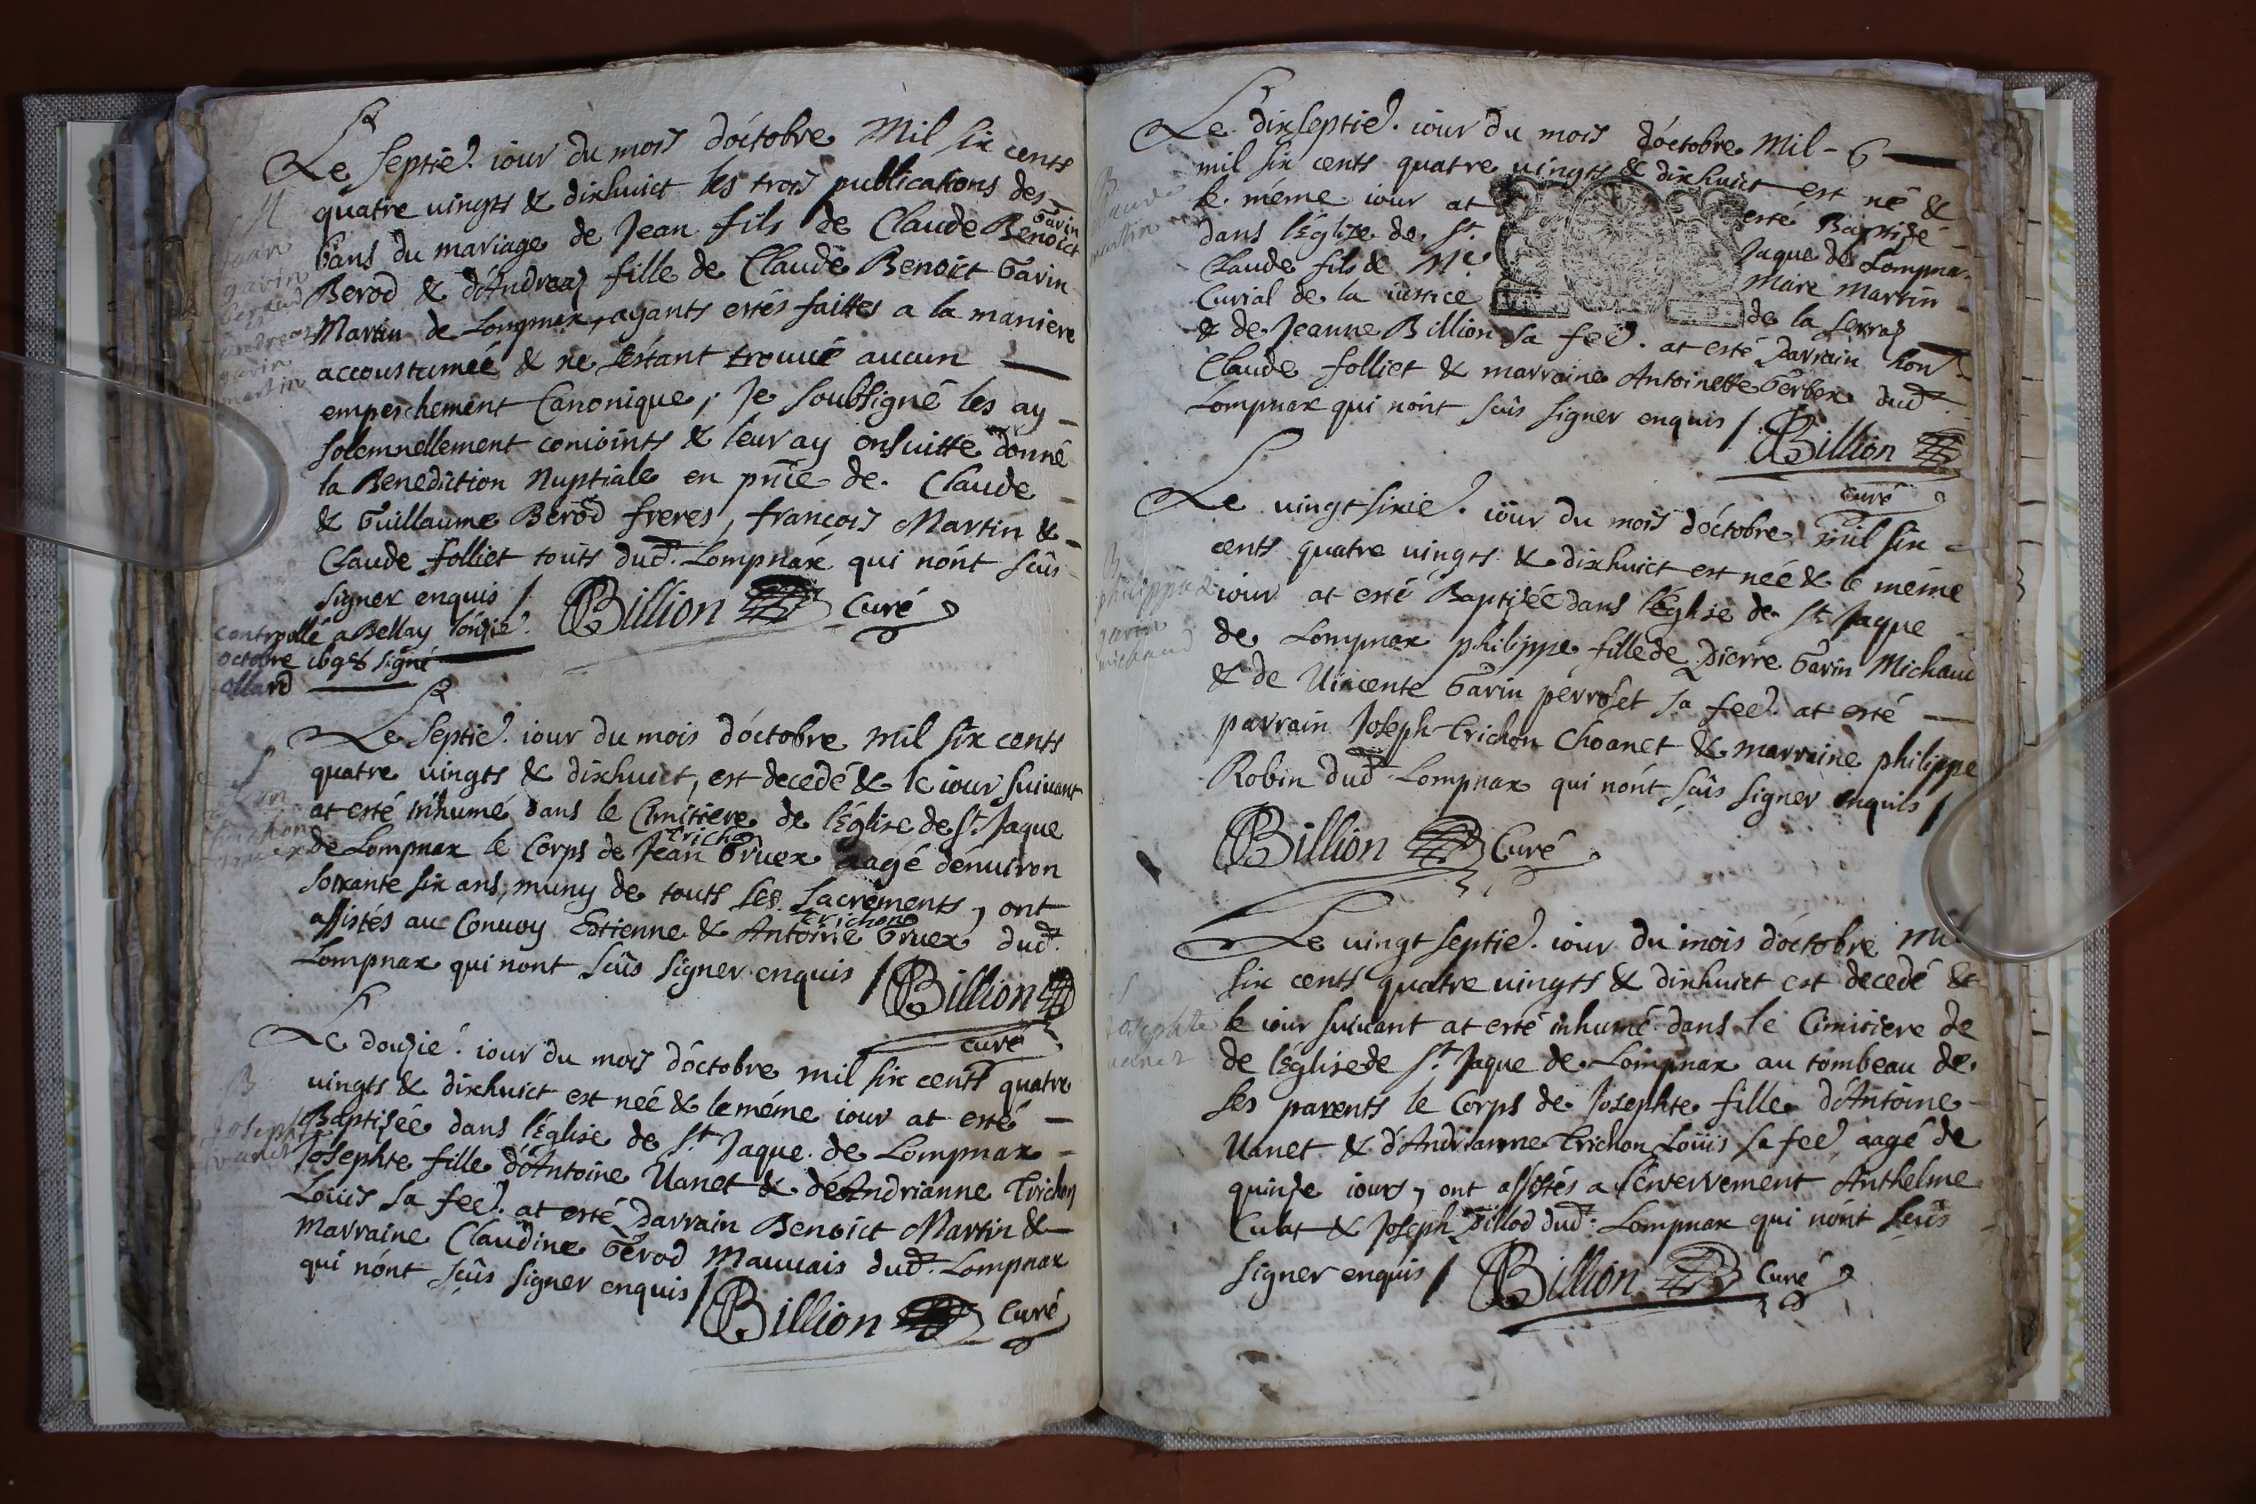 Le septie. iour du mois d'octobre mil six cents
quatre uingts & dixhuict les trois publications des
Garin
bans du mariage de Jean fils de Claude Benoict
Berod & d'Andreaz fille de Claude Benoict Garin
Martin de Lompnax, ayants estés faittes a la maniere
accoustumée & ne s'estant trouué aucun
empeschement Canonique, Je soubsigné les ay
solemnellement conioints & leur ay ensuitte donné
la Benediction Nuptiale en pnce de Claude
& Guillaume Berod freres, françois Martin &
Claude folliet touts dud. Lompnax qui n'ont sçûs
signer enquis / Billion Curé
Contrerollé a Bellay l'onzie.
octobre 1698 signé
ollard
M
Jean
garin
beraud
&
andreaz
garin
martin
Le septie. iour du mois d'octobre mil six cents
quatre uingts & dixhuict, est decedé & le iour suiuant
at esté inhumé dans le Cimitiere de l'Église de St. Jaque
trichon
de Lompnax le Corps de Jean Gruex aagé d'enuiron
soixante six ans, muny de touts les Sacrements, ont
trichon
assistés au Conuoy Estienne & Antoine Gruex dud.
Lompnax qui nont sçûs signer enquis / Billion
curé
S
trichon
Le douzie. iour du mois d'octobre mil six cents quatre
uingts & dixhuict est neé & le méme iour at esté
Baptisée dans l'Église de St. Jaque de Lompnax
Josephte fille d'Antoine Uanet & d'Andrianne Trichon
Loüis sa fee. at esté Parrain Benoict Martin &
marraine Claudine Gérod Mauuais dud. Lompnax
qui n'ont sçûs signer enquis / Billion Curé
B
Josephte
vanet
Le dixseptie. iour du mois d'octobre mil - 6
mil six cents quatre uingts & dixhuict est né &
le méme iour at esté Baptisé
dans l'Église de St. Jaque de Lompnax
Claude fils de Me. Marc Martin
Curial de la iustice de la serraz
& de Jeanne Billion sa fee. at esté Parrain hon.
Claude folliet & marraine Antoinette Gerbex dud.
Lompnax qui n'ont sçûs signer enquis / Billion
curé
B
claude
martin
Le uingtsixie. iour du mois d'octobre mil six
cents quatre uingts & dixhuict est neé & le méme
iour at esté Baptisée dans l'Église de St. Jaque
de Lompnax philippe fille de Pierre Garin Michaud
& de Uincente Garin perroset sa fee. at esté
parrain Joseph Trichon Choanet & marraine philippe
Robin dud. Lompnax qui n'ont sçûs signer enquis /
Billion Curé
B
philippe
garin
michaud
Le uingt septie. iour du mois d'octobre mil
six cents quatre uingts & dixhuict est decedé &
le iour suiuant at esté inhumé dans le Cimitiere de
de l'Église de St. Jaque de Lompnax au tombeau de
ses parents le Corps de Josephte fille d'Antoine
Uanet & d'Andrianne Trichon Loüis sa fee. aagé de
quinze iours, ont assistés a l'enterrement Anthelme
Culat & Joseph Billod dud. Lompnax qui n'ont sçûs
signer enquis / Billion Curé
S
Josephte
vanet